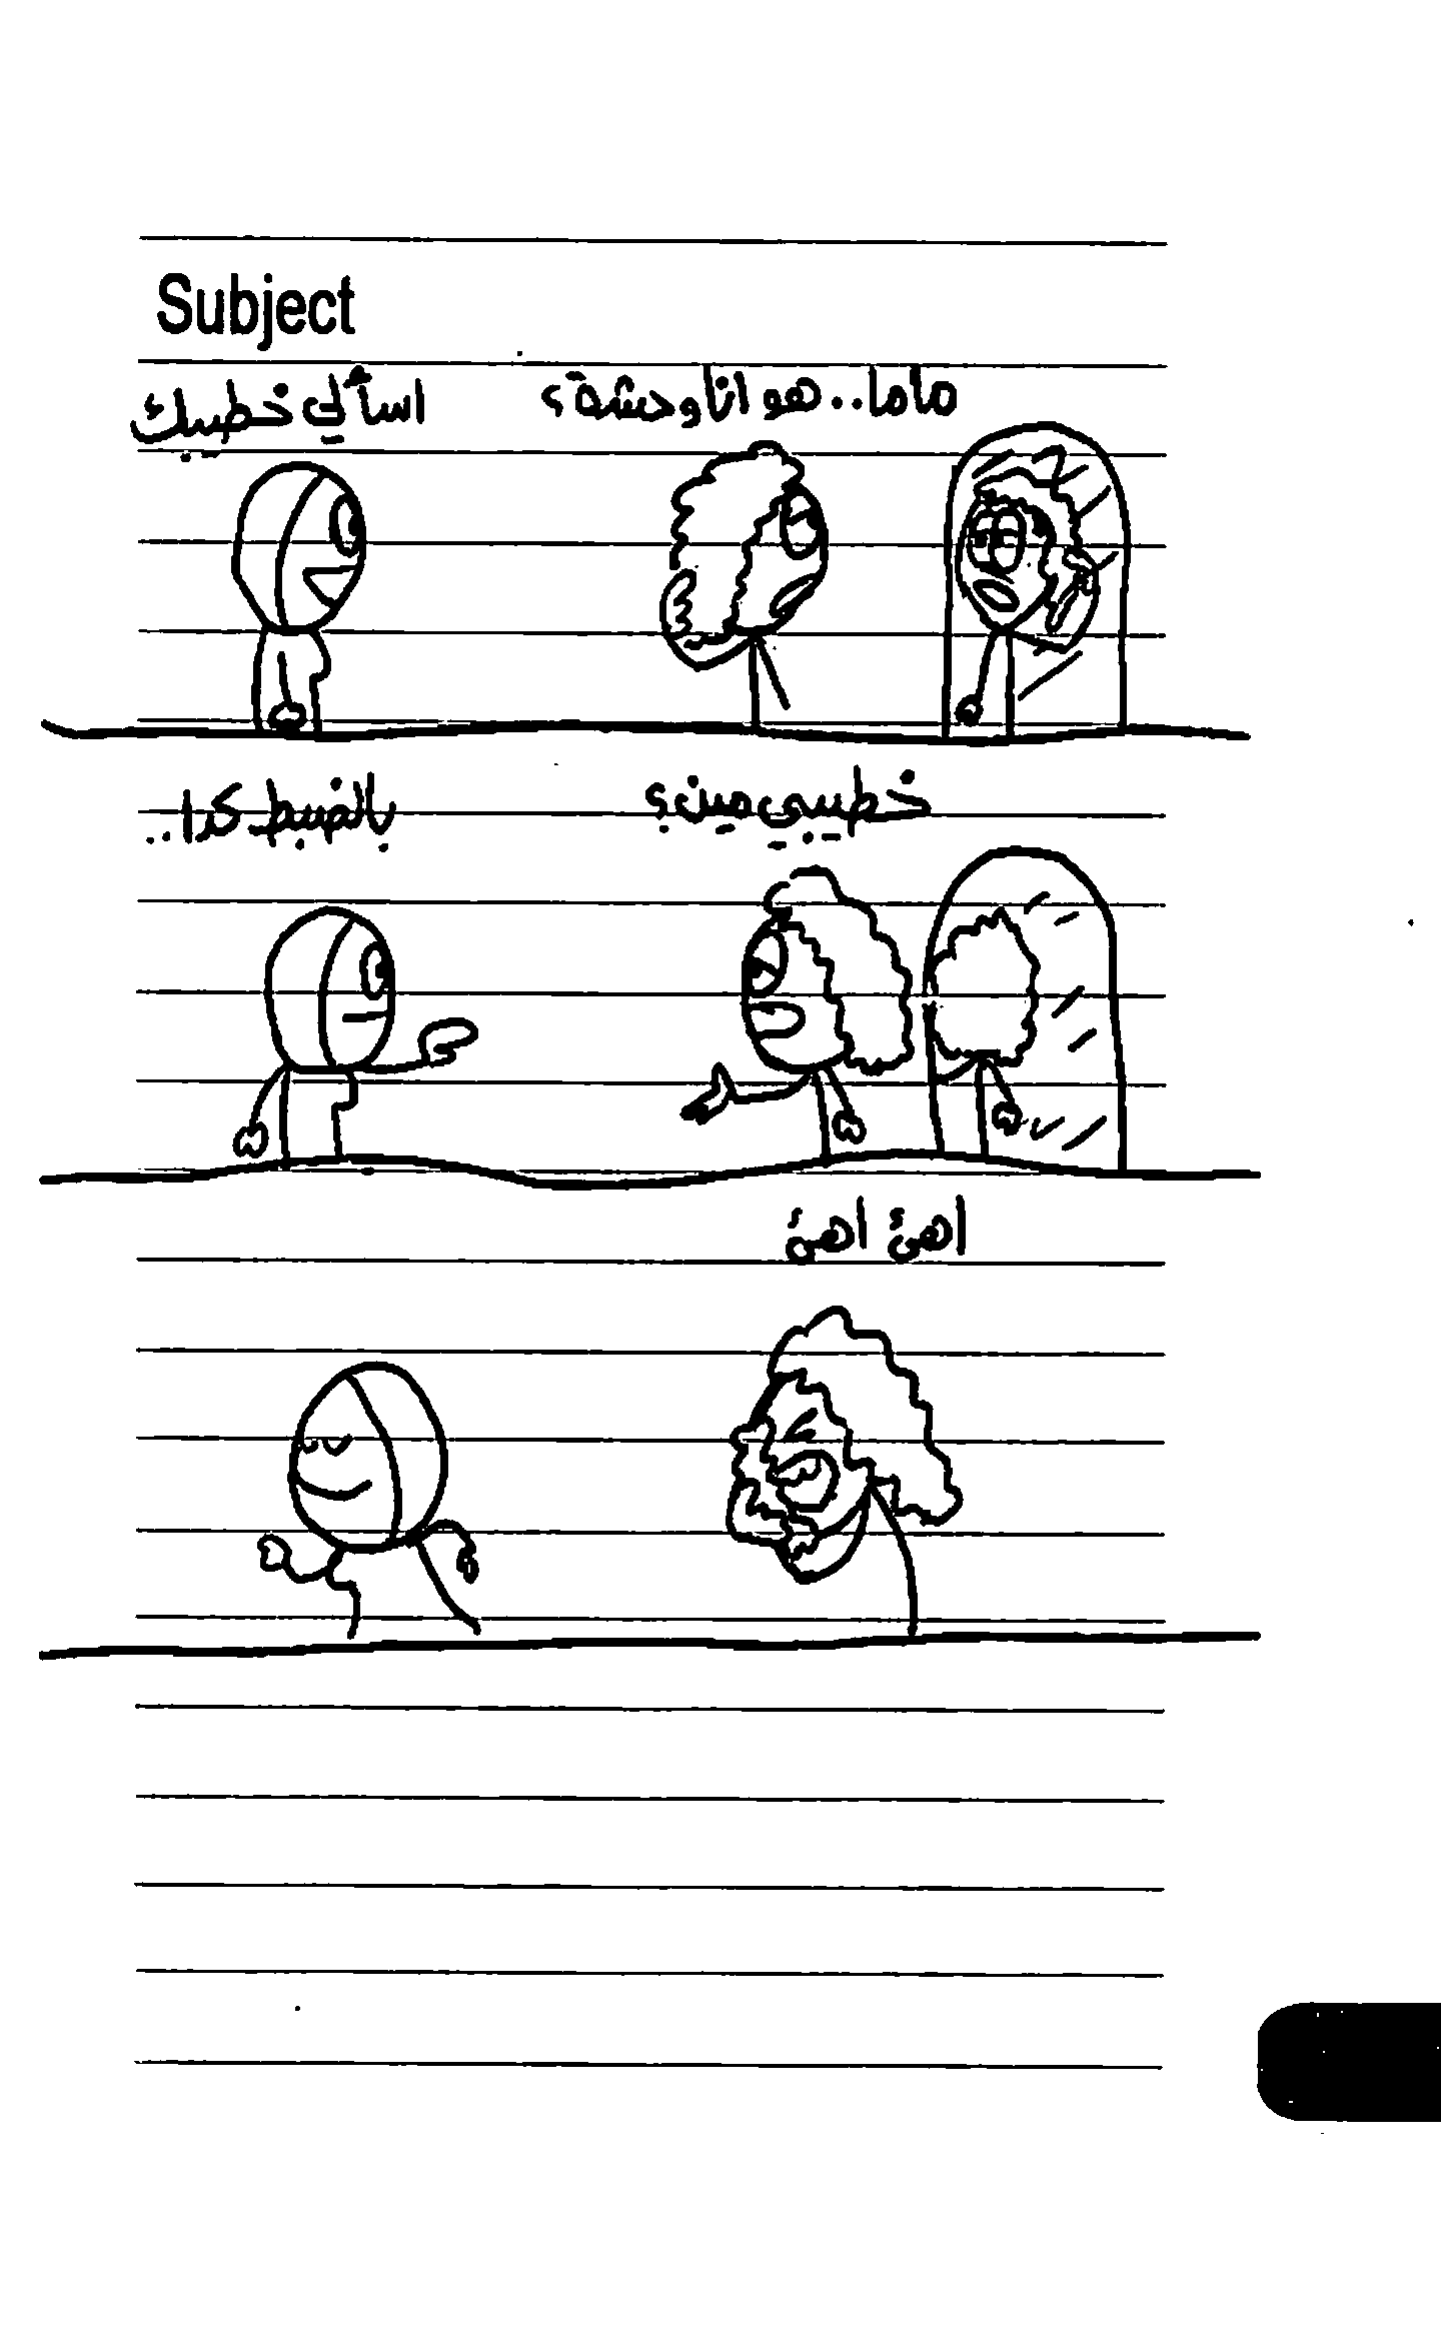 Subject
ماما.. هو انا وحشة؟
اسألي خطيبك
خطيبي مين؟
بالضبط كدا..
اهئ اهئ